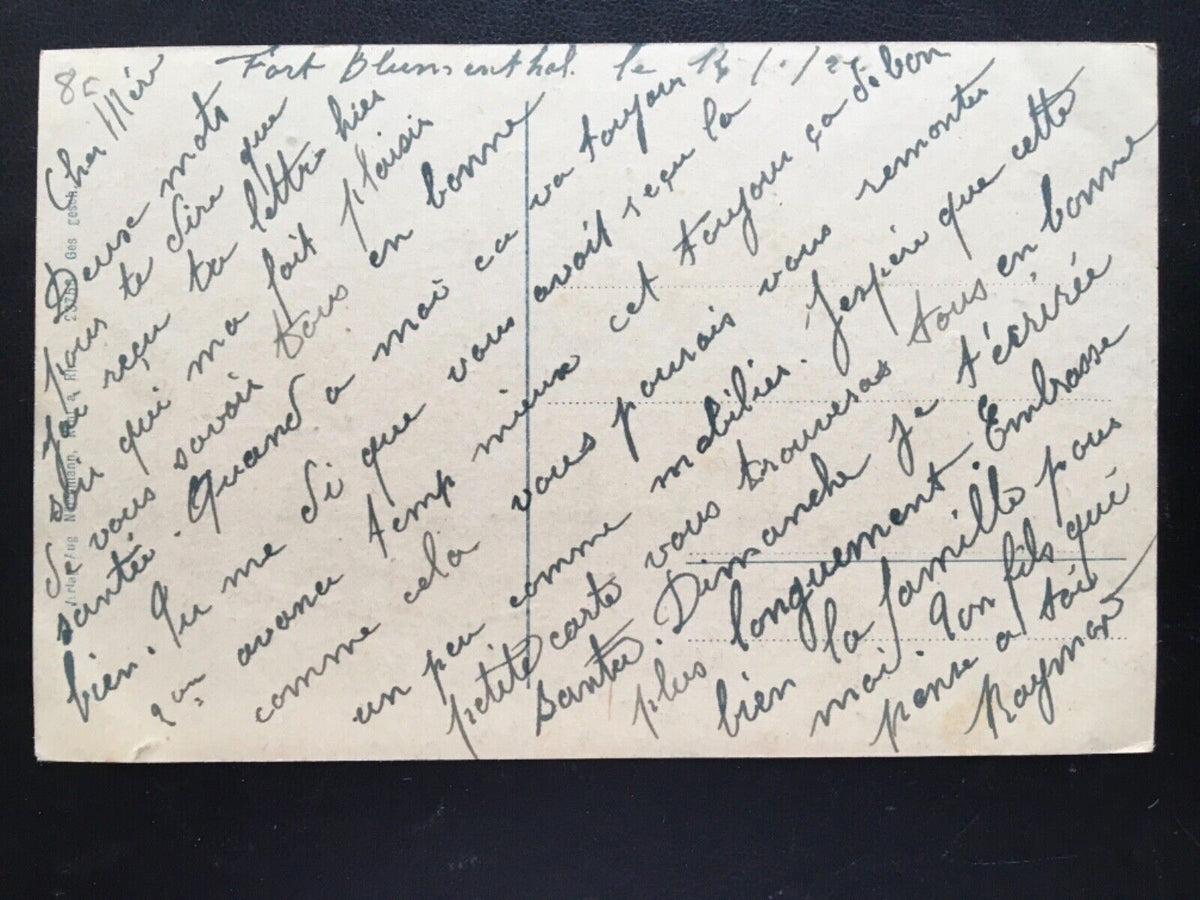 Fort Blumenthal. le
Cher Mère
Deux mots
pour te dire que
J'ai reçu ta lettre hier
soir qui ma fait plaisir
de vous savoir tous en bonne
santée. Quand a moi ca va toujour
bien. Tu me di que vous avait reçu la
avance temp mieux cet toujour ça de bon
comme cela vous pourais vous remonter
un peu comme mobilier. Jespère que cette
petite carte vous trouveras tous en bonne
Santée. Dimanche je t'écrirée
plus longuement. Embrasse
bien la famille pour
moi. Ton fils qui
pense a toi
Raymond
Ges gesch.